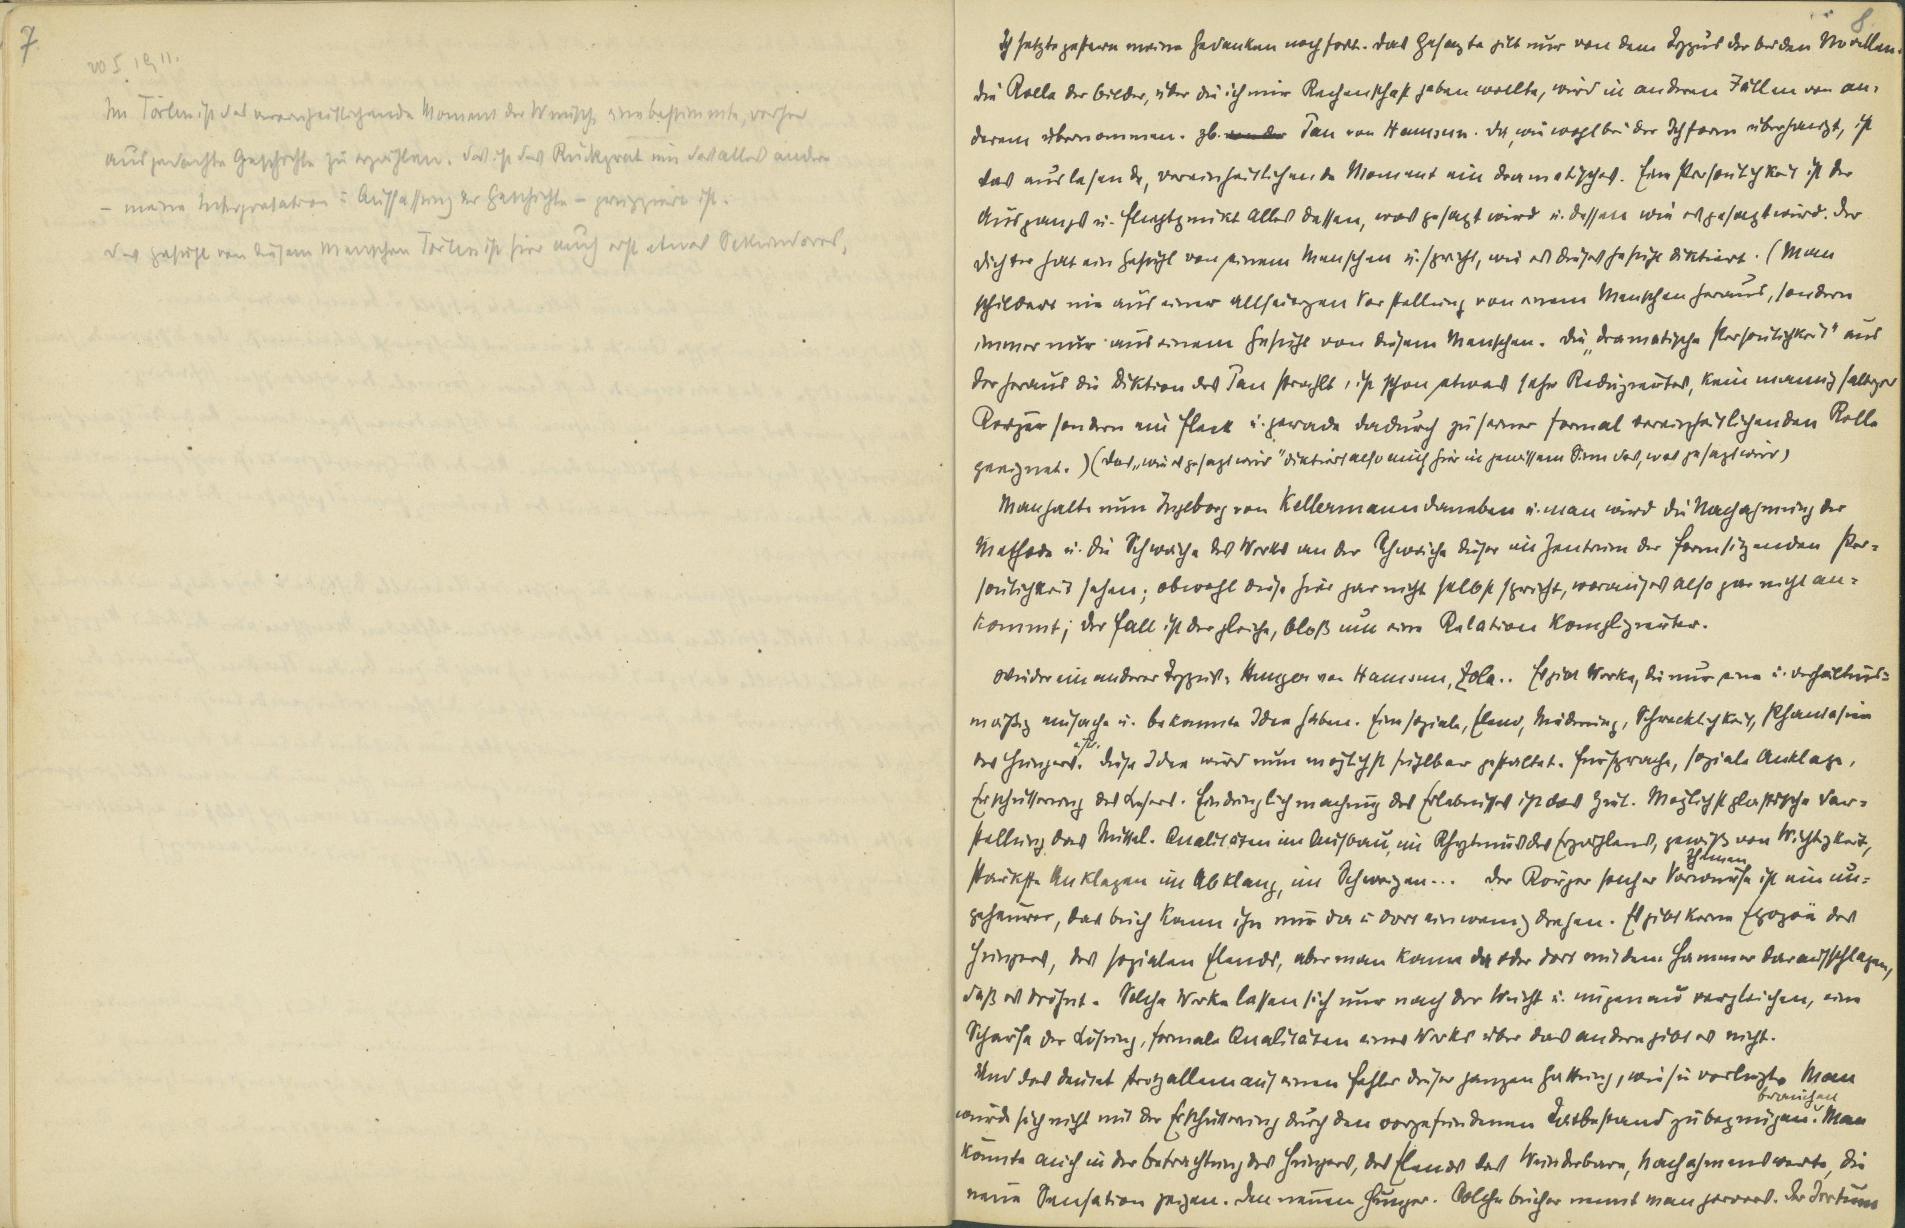 7
Im Törless ist das vereinheitlichende Moment der Wunsch, eine bestimmte, vorher
ausgedachte Geschichte zu erzählen. das ist das Rückgrat um das alles andere
– meine Interpretation u Auffassung der Geschichte – gruppiert ist.
das Gefühl von diesem Menschen Törless ist hier auch erst etwas Sekundäres.
8
Ich setzte gestern meine Gedanken noch fort. das Gesagte gilt nur von dem Typus der beiden Novellen.
die Rolle der Bilder, über die ich mir Rechenschaft geben wollte, wird in anderen Fällen von an-
derem übernommen. zb. Pan von Hamsun. da, wie wohl bei der Ichform überhaupt, ist
das auslesende, vereinheitlichende Moment ein dramatisches. Eine Persönlichkeit ist der
Ausgangs u. Fluchtpunkt alles dessen, was gesagt wird u. dessen wie es gesagt wird. der
Dichter hat ein Gefühl von einem Menschen u. spricht, wie es dieses Gefühl diktiert. (Man
schildert nie aus einer allseitigen Vorstellung von einem Menschen heraus, sondern
immer nur aus einem Gefühl von diesem Menschen. die „dramatische Persönlichkeit" aus
der heraus die Diktion des Pan strahlt, ist schon etwas sehr Reduziertes, kein mannigfaltiger
Körper sondern ein Fleck u. gerade dadurch zu seiner formal vereinheitlichenden Rolle
geeignet.) (das „wie es gesagt wird" diktiert also auch hier in gewissem Sinn das, was gesagt wird)
Man halte nun Ingeborg von Kellermann daneben u. man wird die Nachahmung der
Methode u. die Schwäche des Werks an der Schwäche dieser im Zentrum der Form sitzenden Per-
sönlichkeit sehen; obwohl diese hier gar nicht selbst spricht, worauf es also gar nicht an-
kommt; der Fall ist der gleiche, bloß um eine Relation komplizierter.
Wieder ein anderer Typus: Hunger von Hamsun, Zola.. Es gibt Werke, die nur eine u. verhältnis-
mäßig einfache u. bekannte Idee haben. Eine soziale, Elend, Schrecklichkeit, Phantasien
des Hungers. usw. diese Idee wird nun möglichst fühlbar gestaltet. Fürsprache, soziale Anklage,
Erschütterung des Lesers. Eindringlichmachung des Erlebnisses ist das Ziel. Möglichst plastische Dar-
stellung das Mittel. Qualitäten im Aufbau, im Rhytmus des Erzählens, gewiß von Wichtigkeit,
stärkste Anklagen im Abklang, im Schweigen... der Körper solcher Themen ist ein un-
geheurer, das Buch kann ihn nur da u dort ein wenig drehen. Es gibt keine Epopöe des
Hungers, des sozialen Elends, aber man kann da oder dort mit dem Hammer daraufschlagen,
daß es dröhnt. Solche Werke lassen sich nur nach der Wucht u. ungenau vergleichen, eine
Schärfe der Lösung, formale Qualitäten eines Werks über das andere gibt es nicht.
Und das deutet trotz allem auf einen Fehler dieser ganzen Gattung, wie sie vorliegt. Man
würde sich nicht mit der Erschütterung durch den vorgefundenen Tatbestand zu begnügen brauchen. Man
könnte auch in der Betrachtung des Hungers, des Elends das Wunderbare, Nachahmenswerte, die
neue Sensation zeigen. den neuen Hunger. Solche Bücher nennt man pervers. der Irrtum